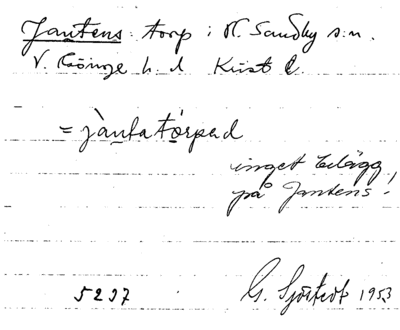 Jantens: torp i N. Sandby s:n.
V. Göinge h. d Krist l.
= jànta tórpad
inget belägg
på Jantens!
5237 G. Sjöstedt 1953